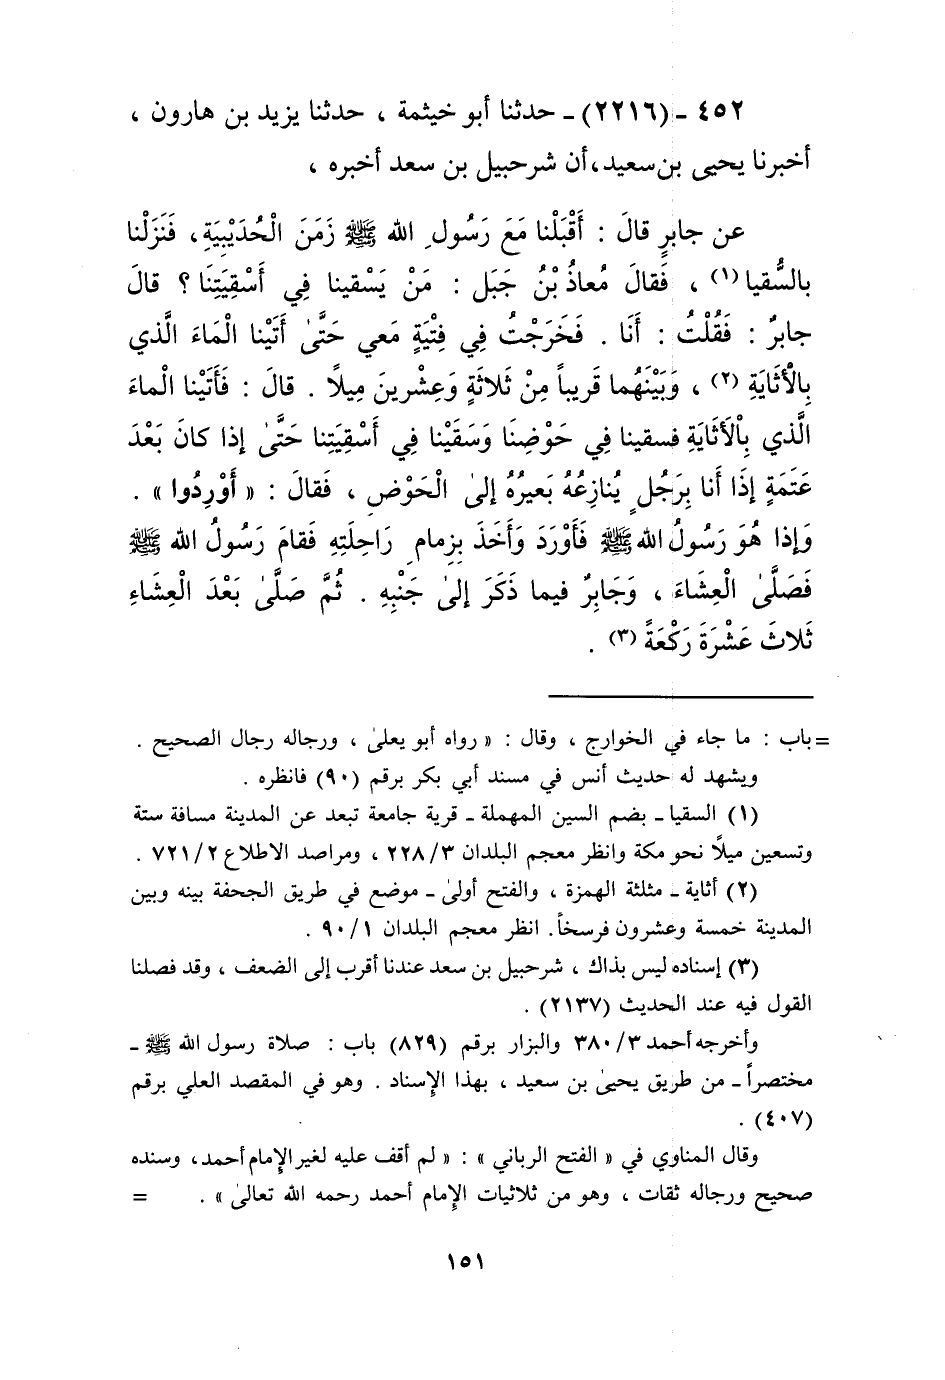 ٤٥٢ - (٢٢١٦) - حدثنا أبو خيثمة ، حدثنا يزيد بن هارون ،
أخبرنا يحيى بن سعيد، أن شرحبيل بن سعد أخبره ،
عن جابرٍ قالَ : أَقْبَلْنا مَعَ رَسُولِ الله ﷺ زَمَنَ الْحُدَيْبِيَةِ، فَنَزَلْنا
بالسُّقيا (١) ، فَقالَ مُعاذُ بْنُ جَبَل : مَنْ يَسْقينا فِي أَسْقِيَتِنَا ؟ قالَ
جابرٌ : فَقُلْتُ : أَنَا . فَخَرَجْتُ فِي فِتْيَةٍ مَعي حَتَّىٰ أَتَيْنا الْمَاءَ الَّذي
بِالْأَثَايَةِ (٢) ، وَبَيْنَهُما قَريباً مِنْ ثَلاثَةٍ وَعِشْرينَ مِيلًا . قالَ : فَأَتَيْنا الْماءَ
الَّذي بِالْأَثَايَةِ فسقينا فِي حَوْضِنَا وَسَقَيْنا فِي أَسْقِيَتِنا حَتَّىٰ إذا كانَ بَعْدَ
عَتَمَةٍ إذَا أَنا بِرَجُلٍ يُنازِعُهُ بَعيرُهُ إلىٰ الْحَوْضِ ، فَقالَ : « أَوْرِدُوا » .
وَإذا هُوَ رَسُولُ الله ﷺ فَأَوْرَدَ وَأَخَذَ بِزِمامِ رَاحِلَتِهِ فَقامَ رَسُولُ الله ﷺ
فَصَلَّىٰ الْعِشَاءَ ، وَجَابِرٌ فيما ذَكَرَ إلىٰ جَنْبِهِ . ثُمَّ صَلَّىٰ بَعْدَ الْعِشَاءِ
ثَلاثَ عَشْرَةَ رَكْعَةً (٣) .
= باب : ما جاء في الخوارج ، وقال : « رواه أبو يعلىٰ ، ورجاله رجال الصحيح .
ويشهد له حديث أنس في مسند أبي بكر برقم (٩٠) فانظره .
(١) السقيا - بضم السين المهملة - قرية جامعة تبعد عن المدينة مسافة ستة
وتسعين ميلًا نحو مكة وانظر معجم البلدان ٢٢٨/٣ ، ومراصد الاطلاع ٧٢١/٢ .
(٢) أثاية - مثلثة الهمزة ، والفتح أولىٰ - موضع في طريق الجحفة بينه وبين
المدينة خمسة وعشرون فرسخاً. انظر معجم البلدان ٩٠/١ .
(٣) إسناده ليس بذاك ، شرحبيل بن سعد عندنا أقرب إلى الضعف ، وقد فصلنا
القول فيه عند الحديث (٢١٣٧) .
وأخرجه أحمد ٣٨٠/٣ والبزار برقم (٨٢٩) باب : صلاة رسول الله ﷺ -
مختصراً - من طريق يحيىٰ بن سعيد ، بهذا الإسناد . وهو في المقصد العلي برقم
(٤٠٧) .
وقال المناوي في « الفتح الرباني » : « لم أقف عليه لغير الإمام أحمد، وسنده
صحيح ورجاله ثقات ، وهو من ثلاثيات الإمام أحمد رحمه الله تعالىٰ » . =
١٥١